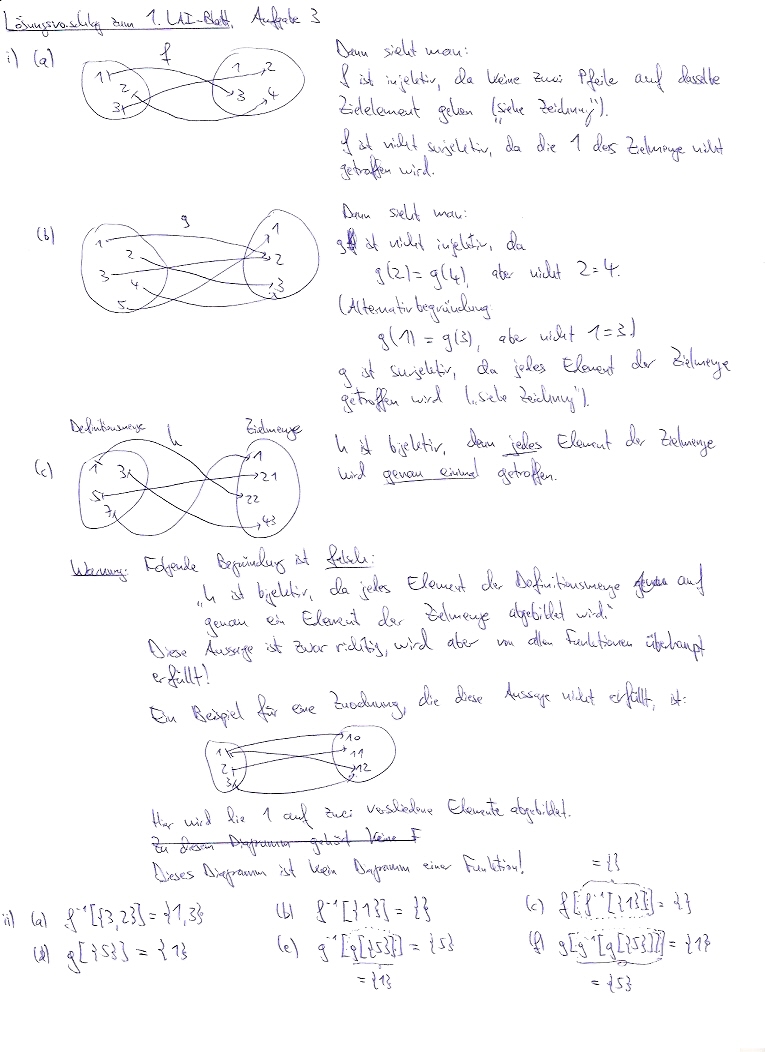 Lösungsvorschlag zum 1. LAI-Blatt, Aufgabe 3
i) (a) f
1 2 3 1 2 3 4
Dann sieht man:
f ist injektiv, da keine zwei Pfeile auf dasselbe
Zielelement gehen („siehe Zeichnung").
f ist nicht surjektiv, da die 1 der Zielmenge nicht
getroffen wird.
(b) g
1 2 3 4 5 1 2 3
Dann sieht man:
g ist nicht injektiv, da
g(2) = g(4), aber nicht 2 = 4.
(Alternativbegründung:
g(1) = g(3), aber nicht 1 = 3.)
g ist surjektiv, da jedes Element der Zielmenge
getroffen wird („siehe Zeichnung").
Definitionsmenge h Zielmenge
(c) 1 3 5 7 1 21 22 43
h ist bijektiv, denn jedes Element der Zielmenge
wird genau einmal getroffen.
Warnung: Folgende Begründung ist falsch:
„h ist bijektiv, da jedes Element der Definitionsmenge auf
genau ein Element der Zielmenge abgebildet wird."
Diese Aussage ist zwar richtig, wird aber von allen Funktionen überhaupt
erfüllt!
Ein Beispiel für eine Zuordnung, die diese Aussage nicht erfüllt, ist:
1 2 3 10 11 12
Hier wird die 1 auf zwei verschiedene Elemente abgebildet.
Zu diesem Diagramm gehört keine F
Dieses Diagramm ist kein Diagramm einer Funktion!
= {}
ii) (a) f⁻¹[{3,2}] = {1,3} (b) f⁻¹[{1}] = {} (c) f[f⁻¹[{1}]] = {}
(d) g[{5}] = {1} (e) g⁻¹[g[{5}]] = {5} (f) g[g⁻¹[g[{5}]]] = {1}
= {1} = {5}